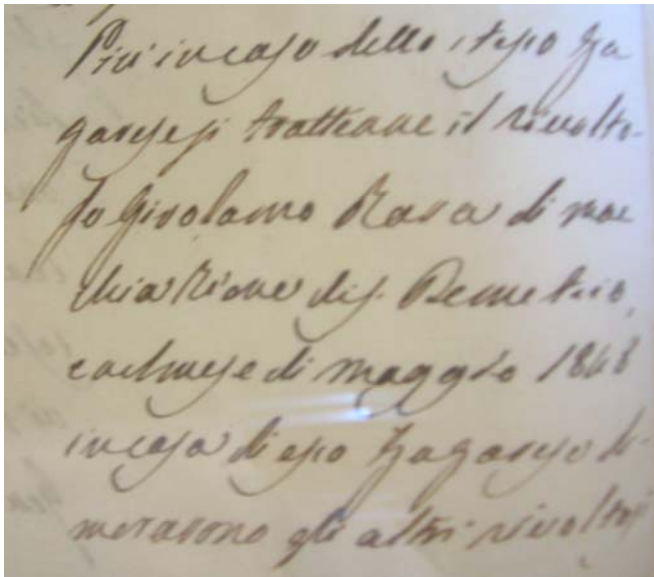 Più in casa dello stesso Za
garese si trattenne il rivolto-
so Girolamo Rasa di Mac
chia Rione di S. Demetrio,
e nel mese di maggio 1848
in casa di esso Zagarese di-
morarono gli altri rivoltosi